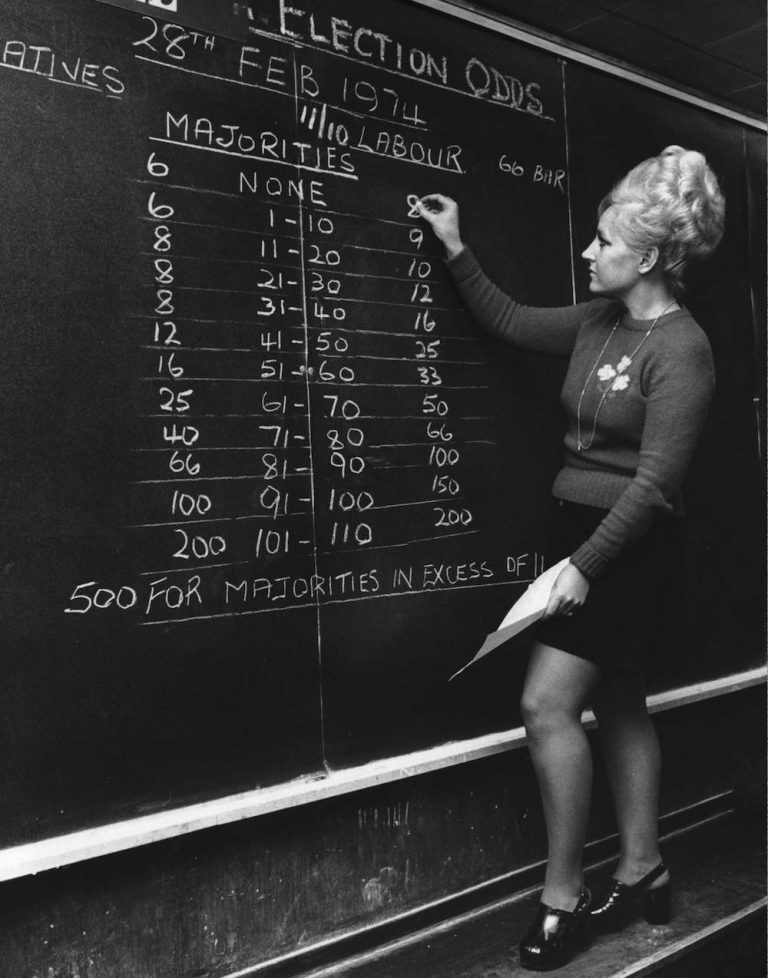 ELECTION ODDS
28TH FEB 1974
ATIVES
11/10 LABOUR
MAJORITIES
66
6 NONE 8
6 1-10 9
8 11-20 10
8 21-30 12
8 31-40 16
12 41-50 25
16 51-60 33
25 61-70 50
40 71-80 66
66 81-90 100
100 91-100 150
200 101-110 200
500 FOR MAJORITIES IN EXCESS OF 11